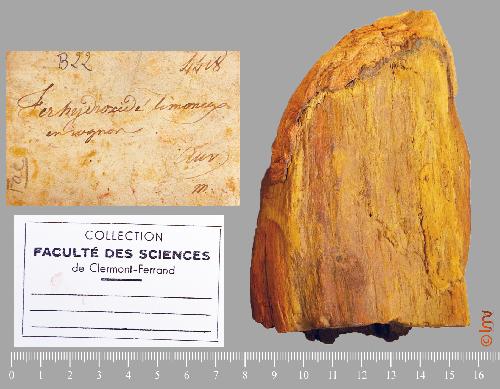 B22
4418
Fer hydroxidé limoneux
en rognon
m.
Fac
COLLECTION
FACULTÉ DES SCIENCES
de Clermont-Ferrand
0 1 2 3 4 5 6 7 8 9 10 11 12 13 14 15 16